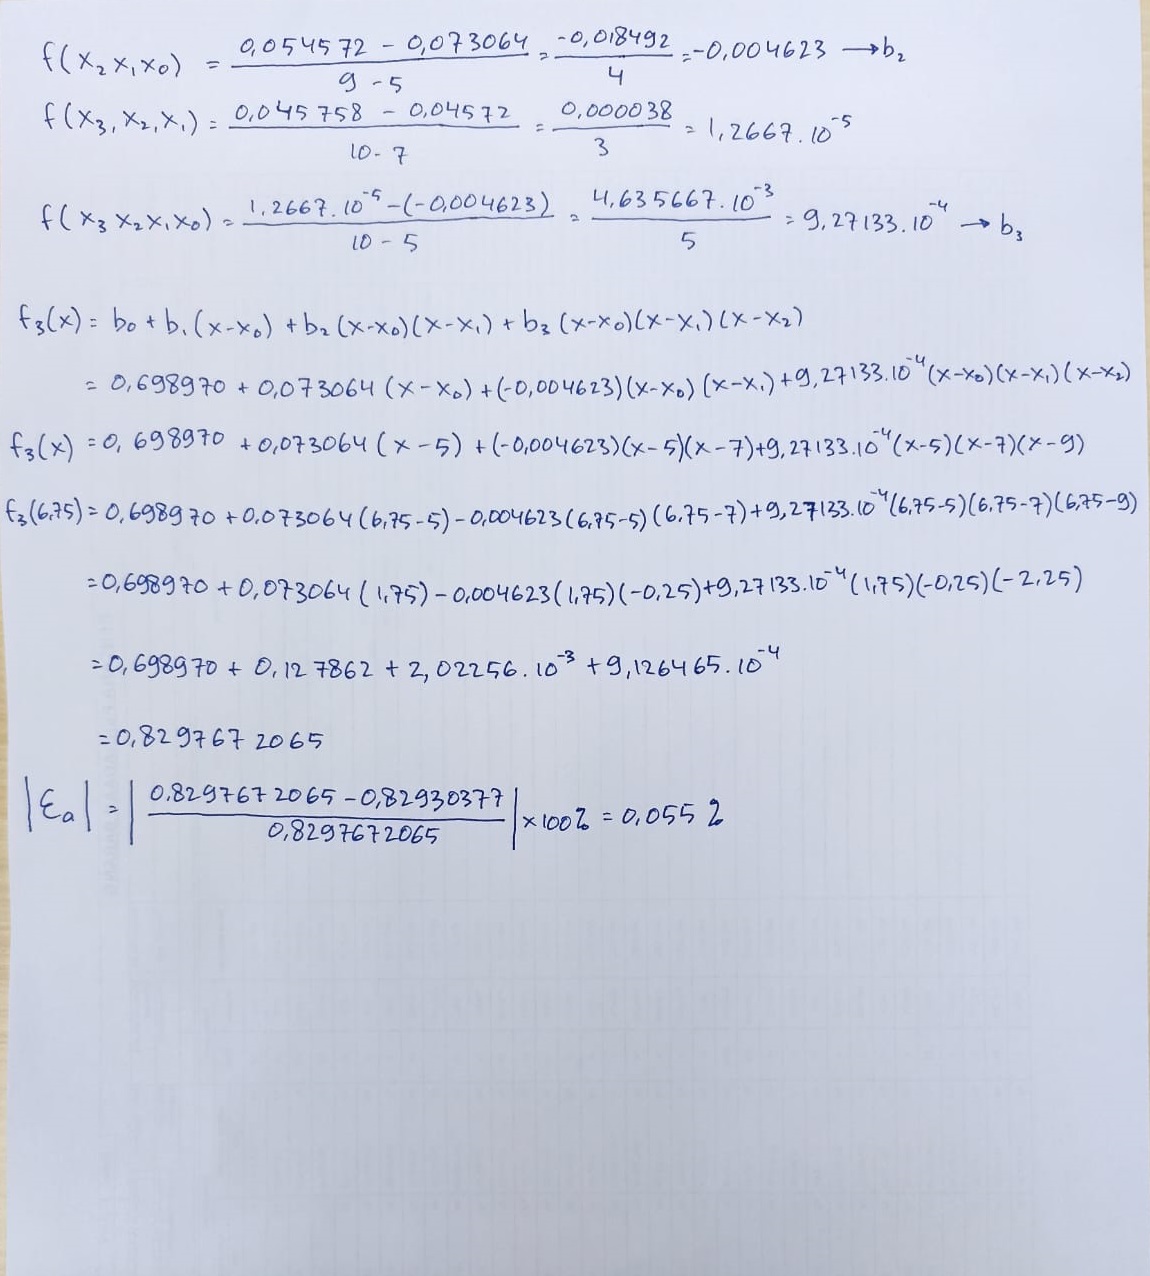 f(x₂x₁x₀) = (0,054572 - 0,073064)/(9-5) = -0,018492/4 = -0,004623 → b₂
f(x₃,x₂,x₁) = (0,045758 - 0,04572)/(10-7) = 0,000038/3 = 1,2667.10⁻⁵
f(x₃x₂x₁x₀) = (1,2667.10⁻⁵-(-0,004623))/(10-5) = 4,635667.10⁻³/5 = 9,27133.10⁻⁴ → b₃
f₃(x) = b₀ + b₁(x-x₀) + b₂(x-x₀)(x-x₁) + b₃(x-x₀)(x-x₁)(x-x₂)
= 0,698970 + 0,073064(x-x₀) + (-0,004623)(x-x₀)(x-x₁) + 9,27133.10⁻⁴(x-x₀)(x-x₁)(x-x₂)
f₃(x) = 0,698970 + 0,073064(x-5) + (-0,004623)(x-5)(x-7)+9,27133.10⁻⁴(x-5)(x-7)(x-9)
f₃(6,75) = 0,698970 + 0,073064(6,75-5) - 0,004623(6,75-5)(6,75-7)+9,27133.10⁻⁴(6,75-5)(6,75-7)(6,75-9)
= 0,698970 + 0,073064(1,75) - 0,004623(1,75)(-0,25)+9,27133.10⁻⁴(1,75)(-0,25)(-2,25)
= 0,698970 + 0,127862 + 2,02256.10⁻³ + 9,126465.10⁻⁴
= 0,8297672065
|εa| = |(0.8297672065 - 0,82930377)/0,8297672065| × 100% = 0,055 %